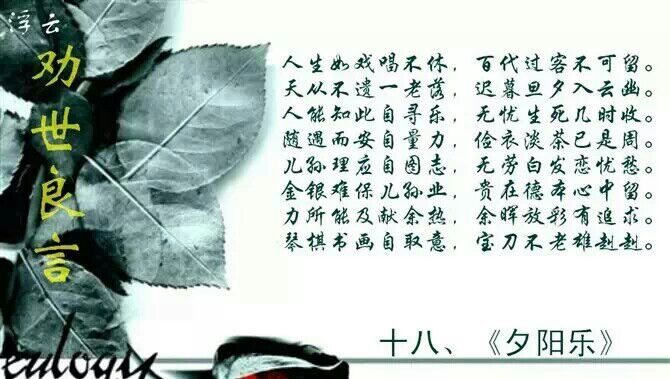 浮云
劝世良言
人生如戏唱不休，百代过客不可留。
天从不遗一老落，迟暮旦夕入云幽。
人能知此自寻乐，无忧生死几时收。
随遇而安自量力，俭衣淡茶已是周。
儿孙理应自图志，无劳白发恋忧愁。
金银难保儿孙业，贵在德本心中留。
力所能及献余热，余晖放彩有追求。
琴棋书画自取意，宝刀不老雄赳赳。
十八、《夕阳乐》
eulogix